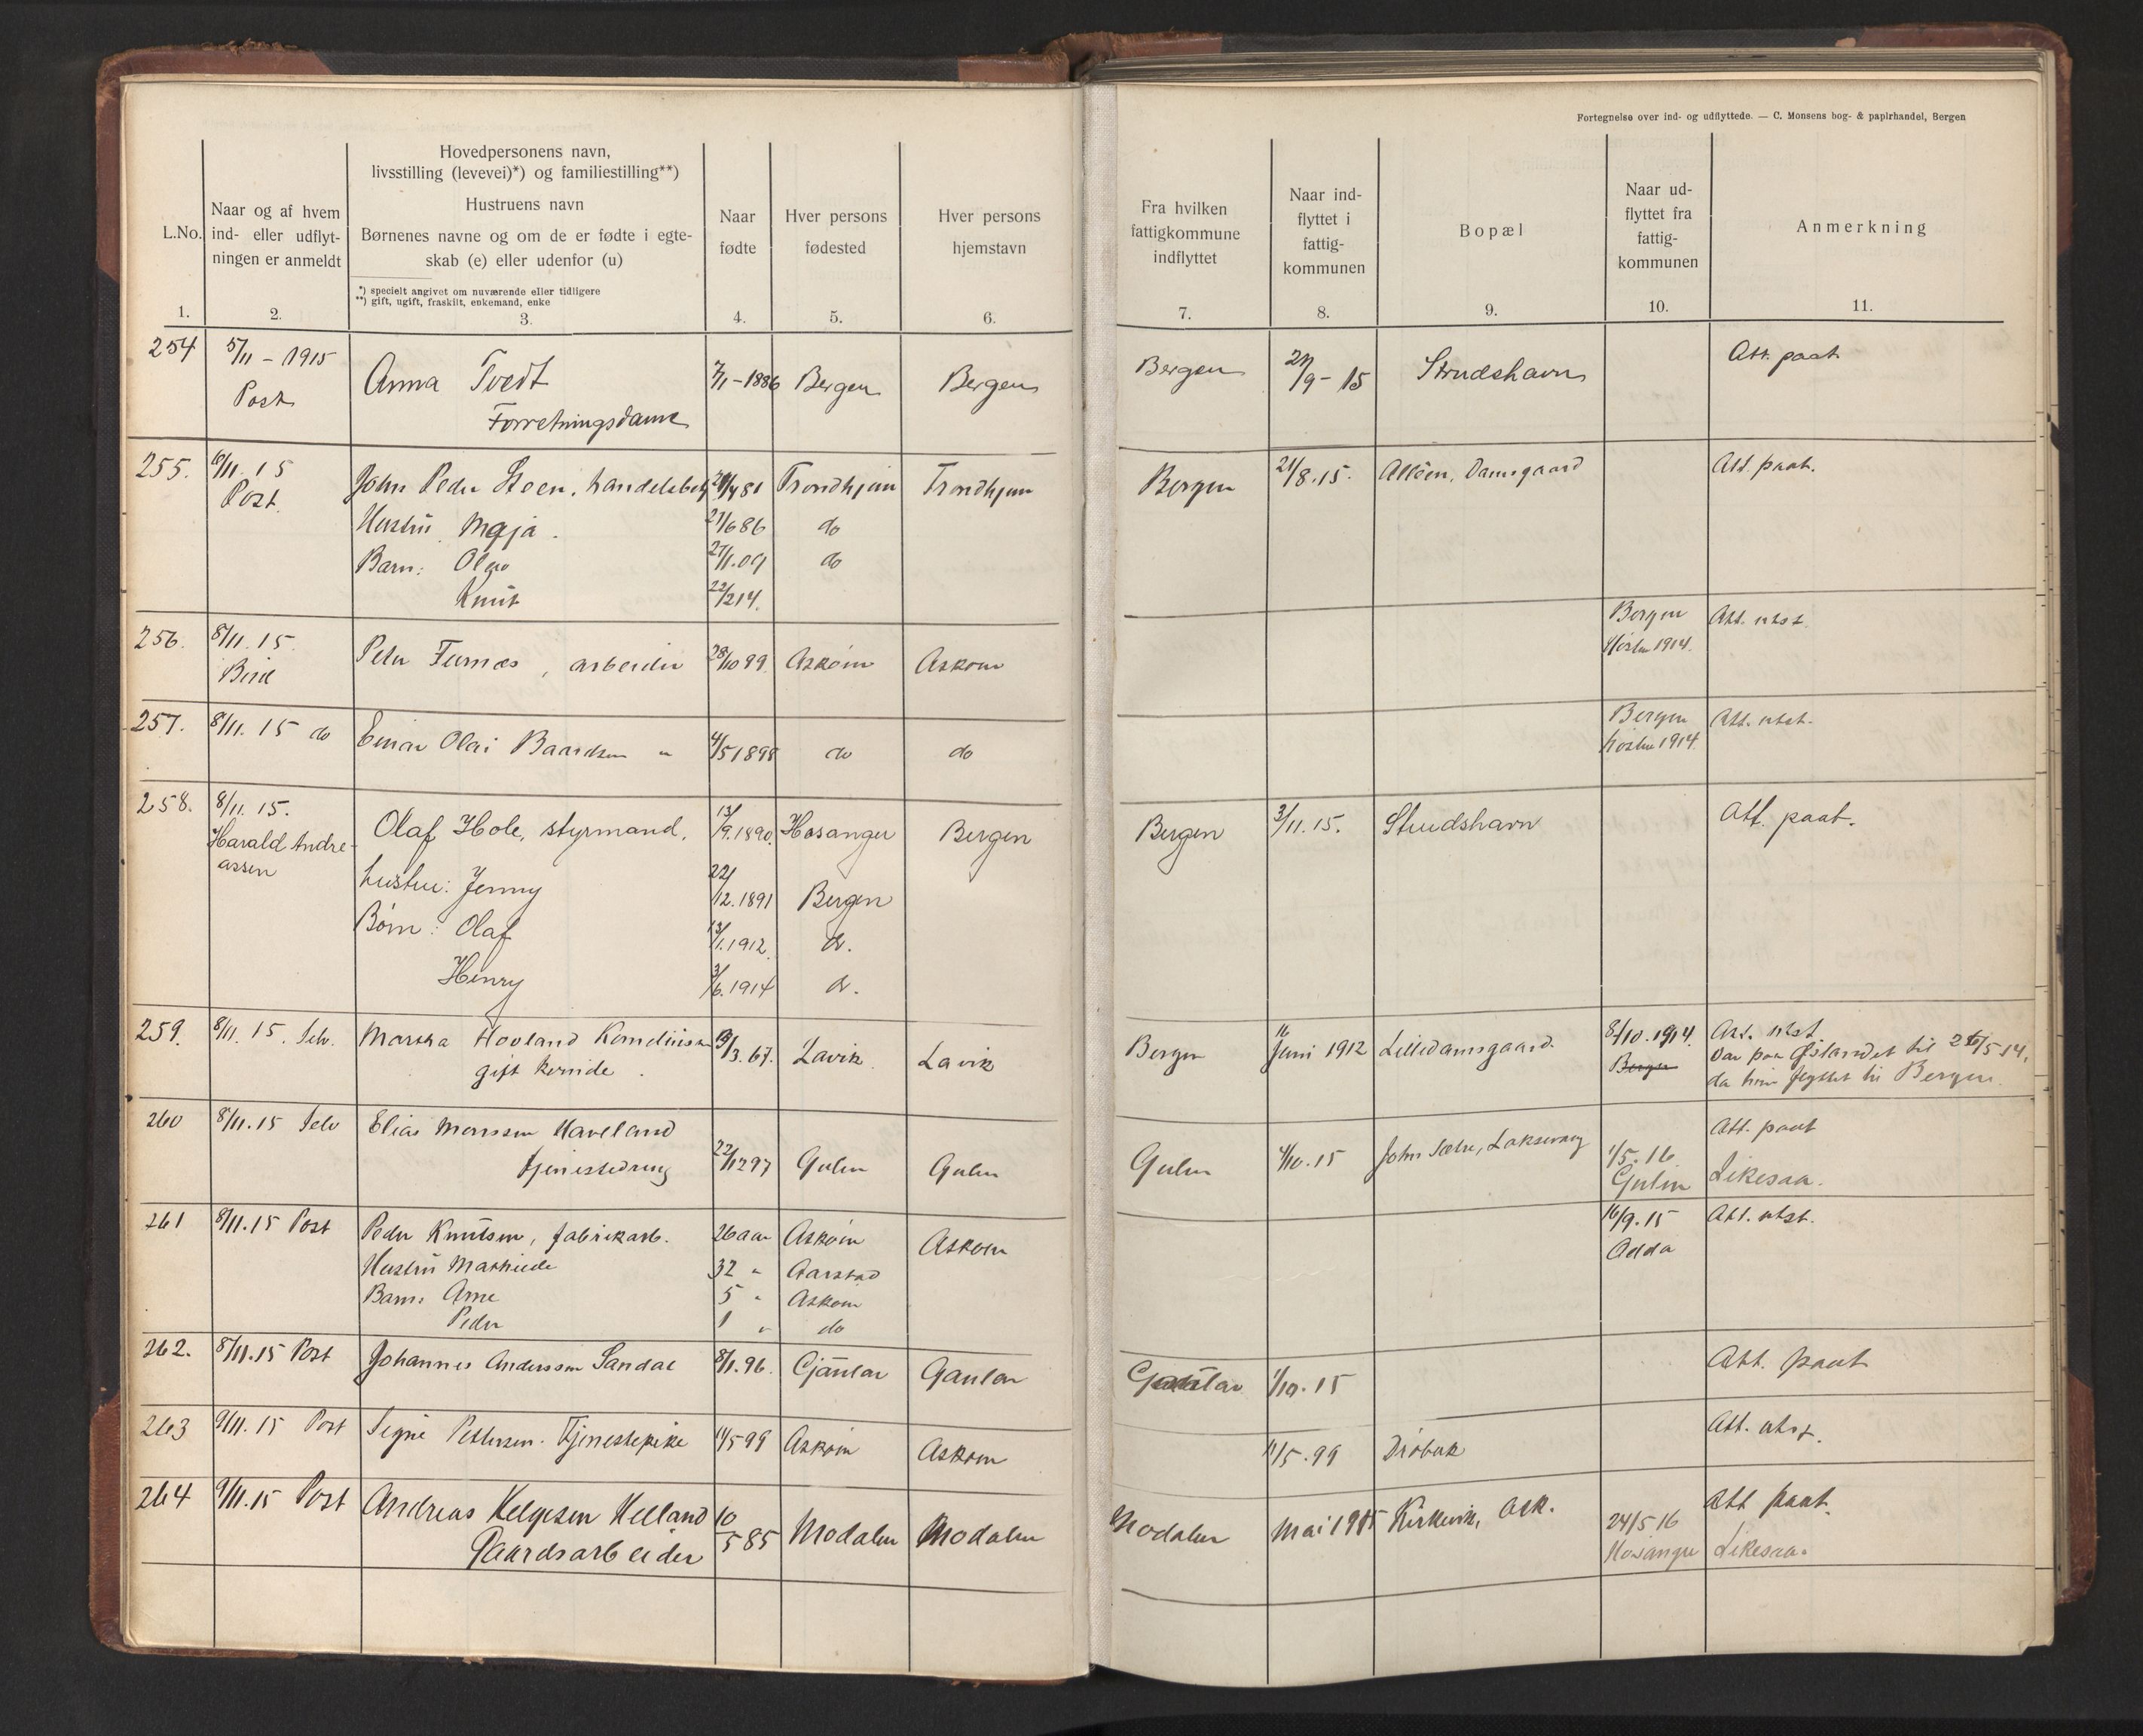 Fortegnelse over ind- og udflyttede. — C. Monsens bog- & papirhandel, Bergen
L.No.
1.
Naar og af hvem
ind- eller udflyt-
ningen er anmeldt
2.
Hovedpersonens navn,
livsstilling (levevei)*) og familiestilling**)
Hustruens navn
Børnenes navne og om de er fødte i egte-
skab (e) eller udenfor (u)
*) specielt angivet om nuværende eller tidligere
**) gift, ugift, fraskilt, enkemand, enke
3.
Naar
fødte
4.
Hver persons
fødested
5.
Hver persons
hjemstavn
6.
Fra hvilken
fattigkommune
indflyttet
7.
Naar ind-
flyttet i
fattig-
kommunen
8.
Bopæl
9.
Naar ud-
flyttet fra
fattig-
kommunen
10.
Anmerkning
11.
254 5/11 - 1915 Anna Tvedt 7/1-1886 Bergen Bergen Bergen 29-15 Strudshavn Att. paat.
Post Forretningsdame
255. 6/11. 15 John Peder Steen, Trondhjem Trondhjem Bergen 21/8.15. Alléen, Damsgaard Att. paat.
Post Hustru Maja. 21/6 86 do
Barn: Olga 27/1.09 do
Knut 22/2 14.
256. 8/11. 15. Peter Furnæs, arbeider 28/10 99 Askøen Askøen Bergen Att. utst.
Brev Høsten 1914.
257. 8/11. 15 do Einar Olai Baardsen " 4/5 1898 do do Bergen Att. utst.
høsten 1914.
258. 8/11. 15. Olaf Hole, styrmand. 13/9.1890. Hosanger Bergen Bergen 3/11. 15. Strudshavn Att. paat.
Harald Andre-
assen
hustru: Jenny 22/12.1891 Bergen
Børn: Olaf 13/1.1912 do.
Henry 3/6.1914 do.
259. 8/11. 15. Selv. Hovland 19/3.67. Lavik Lavik Bergen 16 Juni 1912 Lilledamsgaard. 8/10.1914. Att. utst.
gift kvinde. Bergen Var paa Østlandet til 26/5 14,
da hun flyttet til Bergen.
260 8/11.15 Selv Elias Monssen Haveland Att. paat
Tjenestedreng 22/12 97 Gulen Gulen Gulen 1/10.15 John Sælre, Laksevaag 1/5.16
Gulen Likesaa.
261 8/11.15 Post Peder Knutsen, fabrikarb. 26 aar Askøen Askøen 16/9.15 Att. utst.
Hustru Mathilde 32 " Aarstad Odda
Barn: Arne 5 " Askøen
Peder 1 " do
262. 8/11.15 Post Johannes Anderssen Sandal 8/1.96. Gjaular Gaular Gaular 1/10.15 Att. paat
263 9/11.15 Post Signe Pettersen. Tjenestepike 11/5 99 Askøen Askøen 11/5.99 Drøbak Att. utst.
264 9/11.15 Post Andreas Helgesen Helland 10/5 85 Modalen Modalen Modalen Mai 1915 Kirkevik, Ask. Att. paat.
Gaardsarbeider 24/5.16
Hosanger Likesaa.